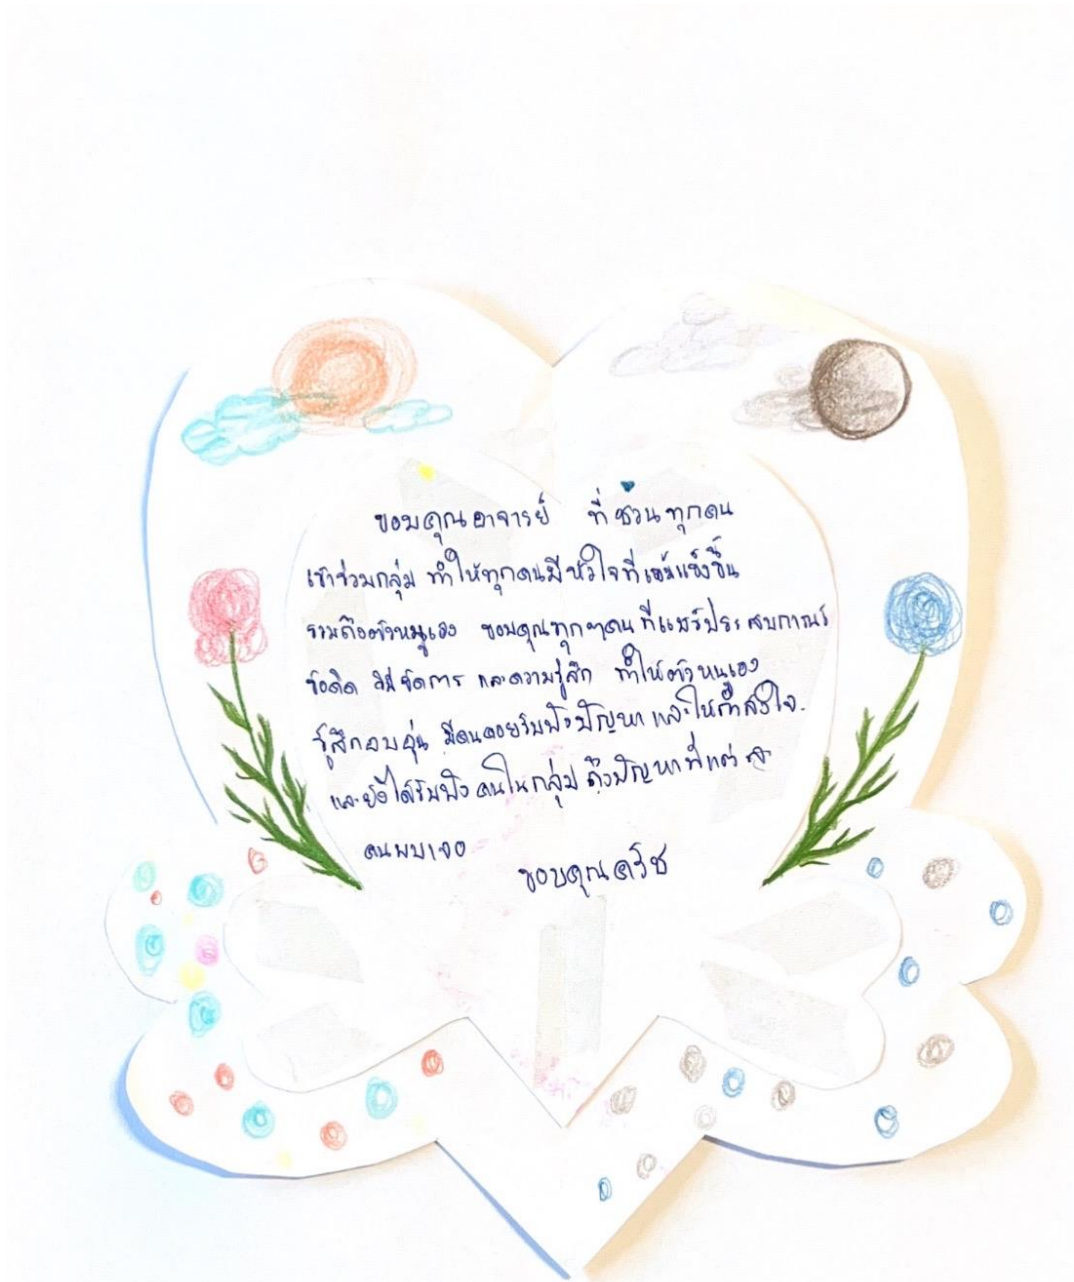 ขอบคุณอาจารย์ ที่ชวนทุกคน
เข้าร่วมกลุ่ม ทำให้ทุกคนมีหัวใจที่เข้มแข็งขึ้น
รวมถึงตัวหนูเอง ขอบคุณทุกๆคนที่แชร์ประสบการณ์
ข้อคิด วิธีจัดการ และความรู้สึก ทำให้ตัวหนูเอง
รู้สึกอบอุ่น มีคนคอยรับฟังปัญหา และให้กำลังใจ
และยังได้รับฟัง คนในกลุ่ม ถึงปัญหาที่แต่ละ
คนพบเจอ
ขอบคุณครับ